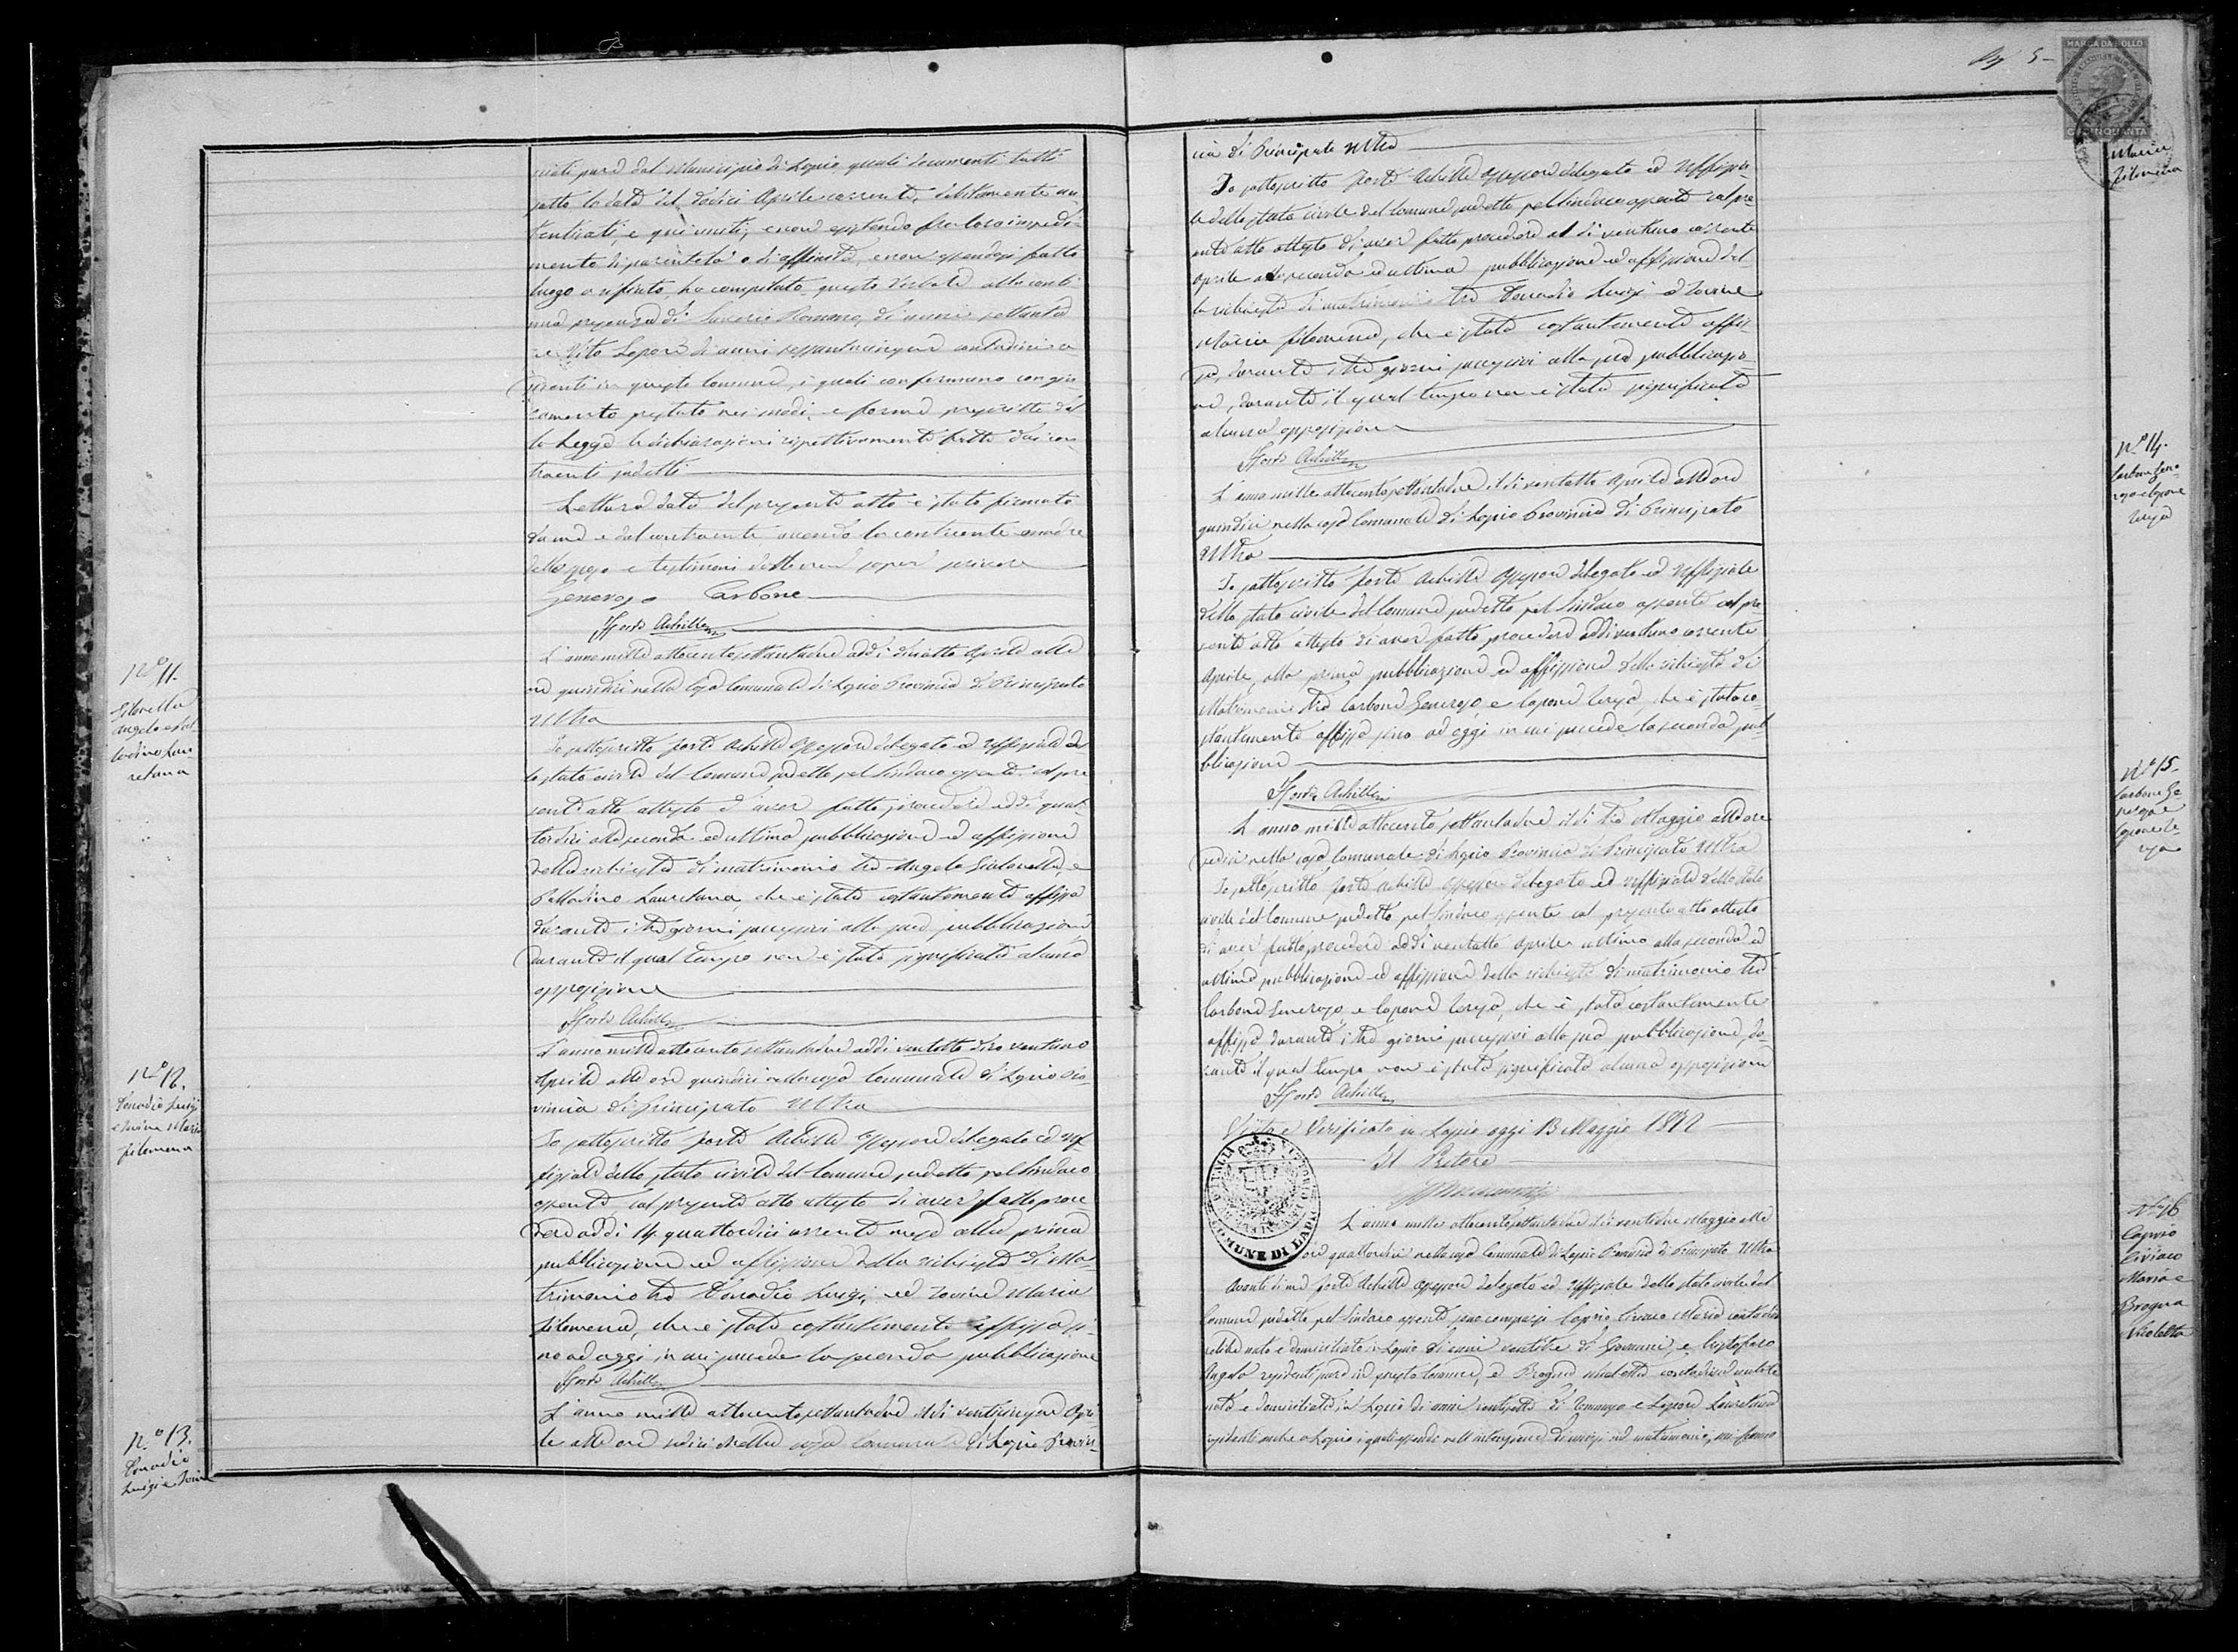 N.° 11.
Gilonella
Angelo e Pal-
ladino Lau-
retana
N.° 12.
Donadio Luigi
e Iovine Maria
filomena
N.° 13.
Donadio
Luigi e Iovine
pure dal Municipio di Lapio quali documenti tutti
sotto la data del dodici Aprile corrente, debitamente au-
tenticati, e qui uniti, e non esistendo fra loro impedi-
mento di parentela o di affinità, e non essendosi fatto
luogo a rifiuto, ho compilato questo verbale alla conti-
nua presenza di Saverio Romano, di anni settanta
e Vito Lepore di anni sessantacinque contadini re-
sidenti in questo Comune, i quali confermano con giu-
ramento prestato nei modi, e forme prescritte dal-
la Legge le dichiarazioni rispettivamente fatte dai con-
traenti sudetti
Lettura data del presente atto è stato firmato
da me e dal contraente avendo la contraente e madre
dello sposo e testimoni detto non saper scrivere
Generoso Carbone
Forte Achille
L'anno mille ottocento settantadue addì diciotto Aprile alle
ore quindici nella Casa Comunale di Lapio Provincia di Principato
Ultra
Io sottoscritto Forte Achille Assessore delegato ed Uffiziale del-
lo stato civile del Comune sudetto pel Sindaco assente col pre-
sente atto attesto d'aver fatto procedere addì quat-
tordici alla seconda ed ultima pubblicazione ed affissione
della richiesta di matrimonio tra Angelo e
Palladino Lauretana, che è stata costantemente affissa
durante i tre giorni successivi alla sua pubblicazione
durante il qual tempo non è stata significata alcuna
opposizione
Forte Achille
L'anno mille ottocento settantadue addì ventotto dico ventuno
Aprile alle ore quindici nella casa Comunale di Lapio Pro-
vincia di Principato Ultra
Io sottoscritto Forte Achille Assessore delegato ed Uf-
fiziale dello stato civile del Comune sudetto pel Sindaco
assente, col presente atto attesto di aver fatto proce-
dere addì 14 quattordici corrente mese alla prima
pubblicazione ed affissione della richiesta di Ma-
trimonio tra Donadio Luigi, ed Iovine Maria
filomena, che è stata costantemente affissa si-
no ad oggi in cui procede la seconda pubblicazione
Forte Achille
L'anno mille ottocento settantadue il dì venticinque Apri-
le alle ore sedici nella casa Comunale di Lapio Provin-
5
MARCA DA BOLLO
CINQUANTA
cia di Principato Ultra
Io sottoscritto Forte Achille Assessore delegato ed Uffizia-
le dello stato civile del Comune sudetto pel Sindaco assente col pre-
sente atto attesto di aver fatto procedere al dì ventuno corrente
Aprile alla seconda ed ultima pubblicazione ed affissione del-
la richiesta di matrimonio tra Donadio Luigi e Iovine
Maria filomena, che è stata costantemente affis-
sa, durante i tre giorni successivi alla sua pubblicazio-
ne, durante il qual tempo non è stata significata
alcuna opposizione
Forte Achille
L'anno mille ottocento settantadue il dì ventotto Aprile alle ore
quindici nella casa Comunale di Lapio Provincia di Principato
Ultra
Io sottoscritto Forte Achille Assessore delegato ed Uffiziale
dello stato civile del Comune sudetto pel Sindaco assente col pre-
sente atto attesto di aver fatto procedere addì ventuno corrente
Aprile, alla prima pubblicazione ed affissione della richiesta di
Matrimonio tra Carbone Generoso, e Lepore Teresa, che è stata co-
stantemente affissa sino ad oggi in cui procede la seconda pub-
blicazione
Forte Achille
L'anno mille ottocento settantadue il dì tre Maggio alle ore
sedici nella casa Comunale di Lapio Provincia di Principato Ultra
Io sottoscritto Forte Achille Assessore delegato ed Uffiziale dello stato
civile del Comune sudetto pel Sindaco assente col presente atto attesto
di aver fatto procedere addì ventotto Aprile ultimo alla seconda ed
ultima pubblicazione ed affissione della richiesta di matrimonio tra
Carbone Generoso, e Lepore Teresa, che è stata costantemente
affissa durante i tre giorni successivi alla sua pubblicazione, du-
rante il qual tempo non è stata significata alcuna opposizione
Forte Achille
Visto e Verificato in Lapio oggi 13 Maggio 1872
Il Pretore
COMUNE DI LAPIO
L'anno mille ottocento settantadue il dì ventidue Maggio alle
ore quattordici nella casa Comunale di Lapio Provincia di Principato Ultra
Avanti di me Forte Achille Assessore delegato ed Uffiziale dello stato civile del
Comune sudetto pel Sindaco assente, sono comparsi Caprio Ciriaco Maria contadino
celibe nato e domiciliato in Lapio di anni ventitre di Giovanni, e Cristofaro
Angela residenti pure in questo Comune, e Brogna Nicoletta contadina nubile
nata e domiciliata in Lapio di anni ventisette di Tommaso e Lepore Lauretana
residenti anche a Lapio i quali essendo nell'intenzione di unirsi in matrimonio, mi fanno
Maria
Filomena
N.° 14.
Carbone Gene-
roso e Lepore
Teresa
N.° 15.
Carbone Ge-
neroso e
Lepore Te-
resa
N.° 16
Caprio
Ciriaco
Maria e
Brogna
Nicoletta